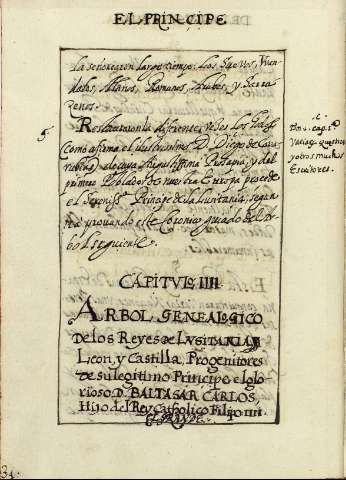 EL PRINCIPE
la señorearon largo tiempo. Los Suevos, Vuen-
dalos, Alanos, Romanos, Arabes, y Sarra
zenos.
Restauraronla diferentes veces los
(como afirma el Illustrissimo D. Diego de Covar
rubias) de cuya Augustissima Prosapia, y del
primero Poblador de nuestra Europa procede
el Sereniss.º Principe de la Lusitania, segun
ira provando este Coronica guiado del Ar
bol siguiente.
c.
cap. 1º
y otros muchos
Escritores.
5
CAPITULO IIII
ARBOL GENEALOGICO
De los Reyes de LVSITANIA
Leon, y Castilla, Progenitores
de su legitimo Principe el glo
rioso D. BALTASAR CARLOS,
Hijo del Rey Catholico Filipo IIII
EL GRANDE